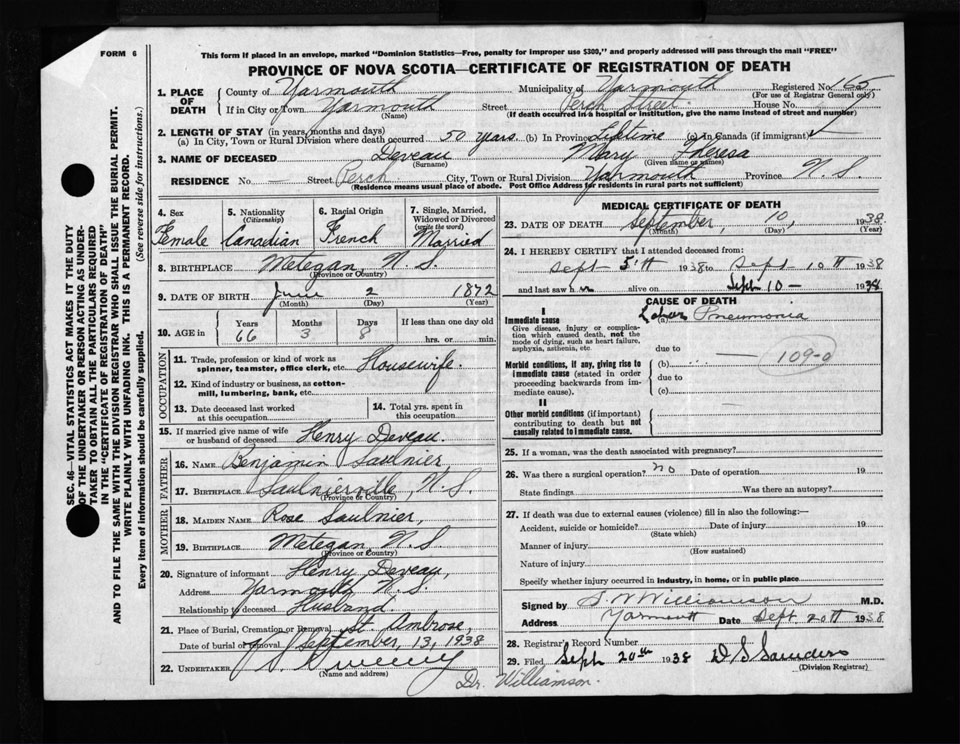 FORM 6
This form if placed in an envelope, marked "Dominion Statistics—Free, penalty for improper use $300," and properly addressed will pass through the mail "FREE"
PROVINCE OF NOVA SCOTIA—CERTIFICATE OF REGISTRATION OF DEATH
1. PLACE OF DEATH County of Yarmouth Municipality of Yarmouth Registered No. 165
(For use of Registrar General only)
If in City or Town Yarmouth Street Perch Street House No.
(Name) (If death occurred in a hospital or institution, give the name instead of street and number)
2. LENGTH OF STAY (in years, months and days)
(a) In City, Town or Rural Division where death occurred 50 years (b) In Province Lifetime (c) In Canada (if immigrant)
3. NAME OF DECEASED Deveau Mary Theresa
(Surname) (Given name or names)
RESIDENCE No. — Street Perch City, Town or Rural Division Yarmouth Province N. S.
(Residence means usual place of abode. Post Office Address for residents in rural parts not sufficient)
4. Sex Female
5. Nationality (Citizenship) Canadian
6. Racial Origin French
7. Single, Married, Widowed or Divorced (write the word) Married
8. BIRTHPLACE Metegan, N. S.
(Province or Country)
9. DATE OF BIRTH June 2 1872
(Month) (Day) (Year)
10. AGE in Years 66 Months 3 Days 8 If less than one day old hrs. or min.
OCCUPATION
11. Trade, profession or kind of work as spinner, teamster, office clerk, etc. Housewife.
12. Kind of industry or business, as cotton-mill, lumbering, bank, etc.
13. Date deceased last worked at this occupation
14. Total yrs. spent in this occupation
15. If married give name of wife or husband of deceased Henry Deveau.
FATHER
16. NAME Benjamin Saulnier
17. BIRTHPLACE Saulnierville, N. S.
(Province or Country)
MOTHER
18. MAIDEN NAME Rose Saulnier,
19. BIRTHPLACE Metegan, N. S.
(Province or Country)
20. Signature of informant Henry Deveau,
Address Yarmouth, N. S.
Relationship to deceased Husband.
21. Place of Burial, Cremation or Removal St. Ambrose,
Date of burial or removal September, 13, 1938
22. UNDERTAKER Sweeny
(Name and address)
Dr. Williamson.
MEDICAL CERTIFICATE OF DEATH
23. DATE OF DEATH September, 10, 1938.
(Month) (Day) (Year)
24. I HEREBY CERTIFY that I attended deceased from:
Sept 5th 1938 to Sept 10th 1938
and last saw alive on Sept 10 — 1938
CAUSE OF DEATH
I
Immediate cause (a) Lobar Pneumonia
Give disease, injury or complication which caused death, not the mode of dying, such as heart failure, asphyxia, asthenia, etc.
due to
109-0
Morbid conditions, if any, giving rise to immediate cause (stated in order proceeding backwards from immediate cause).
(b)
due to
(c)
II
Other morbid conditions (if important) contributing to death but not causally related to immediate cause.
25. If a woman, was the death associated with pregnancy?
26. Was there a surgical operation? no Date of operation 19
State findings Was there an autopsy?
27. If death was due to external causes (violence) fill in also the following:—
Accident, suicide or homicide? Date of injury 19
(State which)
Manner of injury
(How sustained)
Nature of injury
Specify whether injury occurred in industry, in home, or in public place
Signed by S. W Williamson M.D.
Address Yarmouth Date Sept 20th 1938
28. Registrar's Record Number
29. Filed Sept 20th 1938 D S Saunders
(Division Registrar)
SEC. 46—VITAL STATISTICS ACT MAKES IT THE DUTY
OF THE UNDERTAKER OR PERSON ACTING AS UNDERTAKER TO OBTAIN ALL THE PARTICULARS REQUIRED
IN THE "CERTIFICATE OF REGISTRATION OF DEATH"
AND TO FILE THE SAME WITH THE DIVISION REGISTRAR WHO SHALL ISSUE THE BURIAL PERMIT.
WRITE PLAINLY WITH UNFADING INK. THIS IS A PERMANENT RECORD.
Every item of information should be carefully supplied. (See reverse side for instructions.)